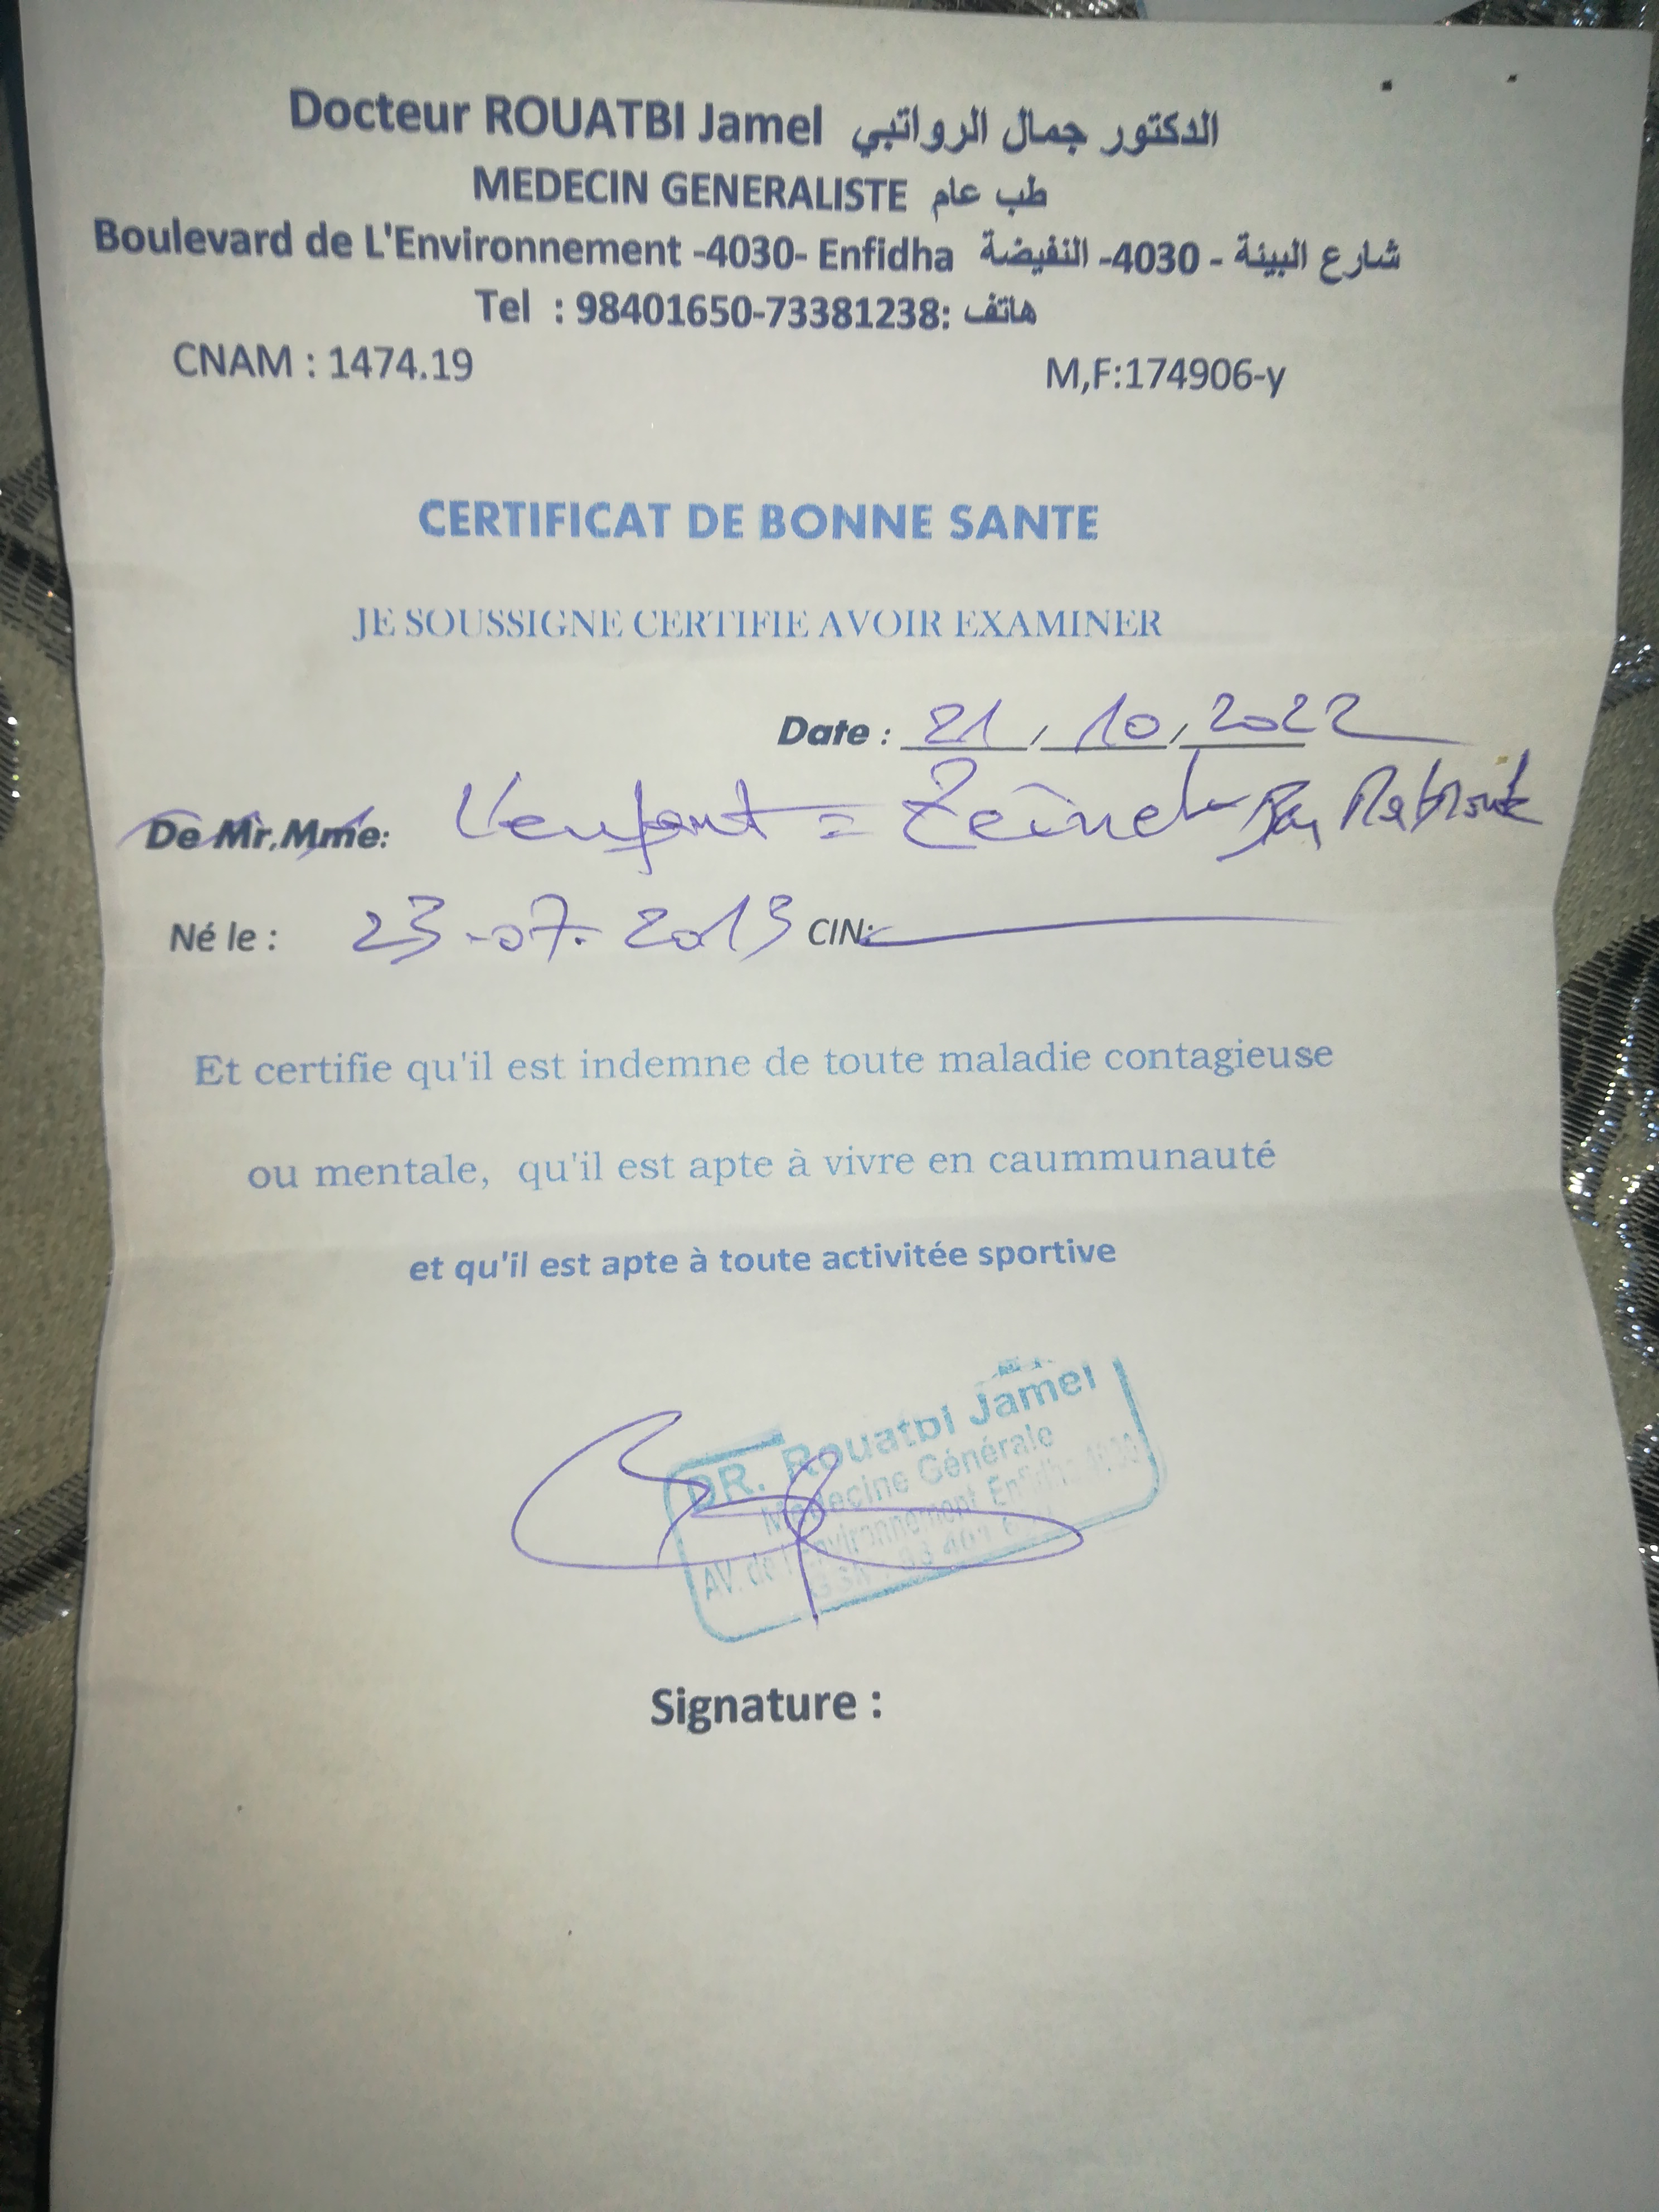 Docteur ROUATBI Jamel الدكتور جمال الرواتبي
MEDECIN GENERALISTE طب عام
Boulevard de L'Environnement -4030- Enfidha شارع البيئة - 4030- النفيضة
Tel : 98401650-73381238: هاتف
CNAM : 1474.19 M,F:174906-y
CERTIFICAT DE BONNE SANTE
JE SOUSSIGNE CERTIFIE AVOIR EXAMINER
Date : 21 / 10 / 2022
De Mr.Mme: L'enfant = Zeineb Ben
Né le : 23-07.2013 CIN:
Et certifie qu'il est indemne de toute maladie contagieuse
ou mentale, qu'il est apte à vivre en caummunauté
et qu'il est apte à toute activitée sportive
DR. Rouatbi Jamel
Médecine Générale
AV. de l'Environnement Enfidha 4030
Signature :